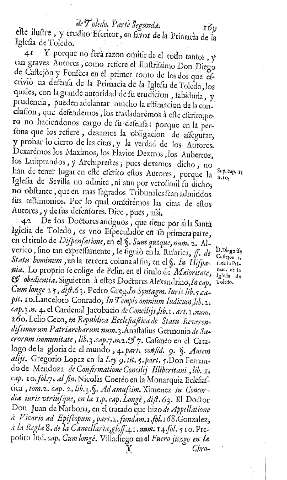 de Toledo. Parte Segunda. 169
este ilustre, y erudito Escritor, en favor de la Primacia de la
Iglesia de Toledo.
41 Y porque no será razon omitir de el todo tantos, y
tan graves Autores, como refiere el Ilustrissimo Don Diego
de Castejòn y Fonseca en el primer tomo de los dos que es-
crivió en defensa de la Primacia de la Iglesia de Toledo, los
quales, con la grande autoridad de su erudicion, sabiduria, y
prudencia, pueden adelantar mucho la estimacion de la con-
clusion, que defendemos, los trasladarémos à este escrito, pe-
ro no haciendonos cargo de su defensa: porque en la per-
sona que los refiere, dexamos la obligacion de assegurar,
y probar lo cierto de las citas, y la verdad de los Autores.
Dexarémos los Maximos, los Flavios Dextros, los Aubertos,
los Luitprandos, y Archiprestes; pues dexamos dicho, no
han de tener lugar en este escrito estos Autores, porque la
Iglesia de Sevilla no admite, ni aun por verosimil su dicho;
no obstante, que en mas sagrados Tribunales sean admitidos
sus testimonios. Por lo qual omitirémos las citas de estos
Autores, y de sus defensores. Dice, pues, assi.
42 De los Doctores antiguos, que tiene por sì la Santa
Iglesia de Toledo, es uno Especulador en su primera parte,
en el titulo de Dispensatione, en el §. Sunt quoque, num. 2. Al-
verico, sino en expressamente, le siguiò en la Rubrica, ff. de
Statu hominum, en la tercera columna fin, en el §. de Hispa-
nia. Lo proprio se colige de Pelin. en el titulo de Maioritate,
& obedientia. Siguieron à estos Doctores Alexandrino, in cap.
Cum longe 25. dist. 63. Pedro Greg. In Syntagm. Iuris lib. 15. ca-
pit. 10. Lanceloto Conrado, In Templo omnium Iudicum, lib. 2.
cap. 3. num. 4. el Cardenal Jacobacio de Concilijs, lib. 1. art. 1. num.
160. Lelio Ceco, in Republica Ecclesiastica de Statu
Patriarcharum num. 3. Anastasius Germonio de Sa-
crorum immunitate, lib. 3. cap. 7. n. 2. & 7. Casaneo en el Cata-
logo de la gloria de el mundo, 4. part. consid. 9. §. Autem
Gregorio Lopez en la Ley 9. tit. 5. part. 1. Don Fernan-
do de Mendoza de Confirmatione Concilij Illiberitani, lib. 1.
cap. 10. fol. 7. al fin. Nicolàs Coetèo en la Monarquia Eclesias-
tica, tom. 2. cap. 2. lib. 3. §. Ad Ximenez in Concor-
dia iuris utriusque, in la 1. p. cap. Longè, dist. 63. El Doctor
Don Juan de Narbona, en el tratado que hizo de Appellatione
à Vicario ad Episcopum, part. 2. fundam. 1. fol. 168. Gonzalez,
à la Regla 8. de la Cancelaria, gloss. 41. num. 14. fol. 510. Pre-
posito Ind. cap. Cum longè. Villadiego en el Fuero juzgo en la
Y Chro-